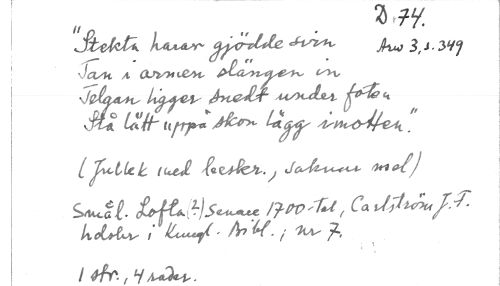 D 74.
Arw 3, s. 349
"Stekta harar gjödde svin
Tan i armen slängen in
Telgan ligger snedt under foten
Stå lätt uppå skon lägg imotten."
(Jullek med beskr., saknar mel)
Smål. Lofta (?) Senare 1700-tal, Carlström J. F.
hdskr i Kungl. Bibl.; nr 7.
1 str., 4 rader.